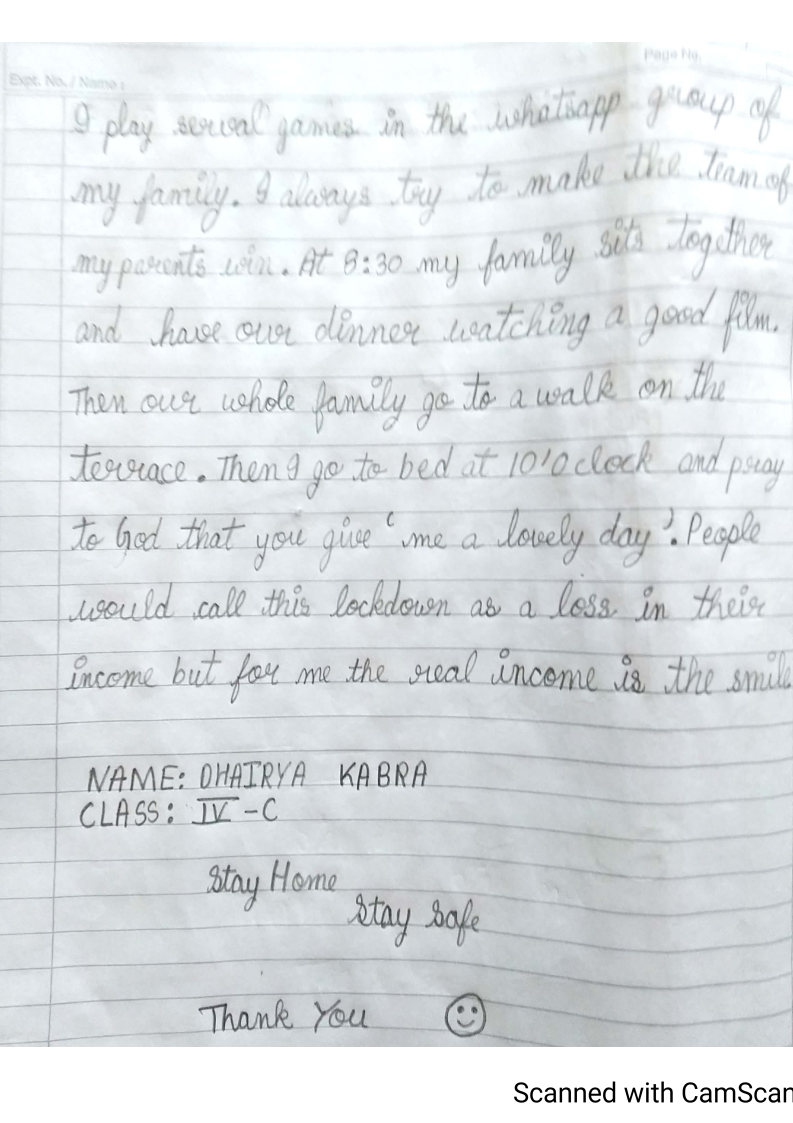 Page No.
Expt. No. / Name :
I play serval games in the whatsapp group of
my family. I always try to make the team of
my parents win. At 8:30 my family sits together
and have our dinner watching a good film.
Then our whole family go to a walk on the
terrace. Then I go to bed at 10'O clock and pray
to God that you give ' me a lovely day '. People
would call this lockdown as a loss in their
income but for me the real income is the smile
NAME: DHAIRYA KABRA
CLASS: IV - C
Stay Home
Stay Safe
Thank You
Scanned with CamScan